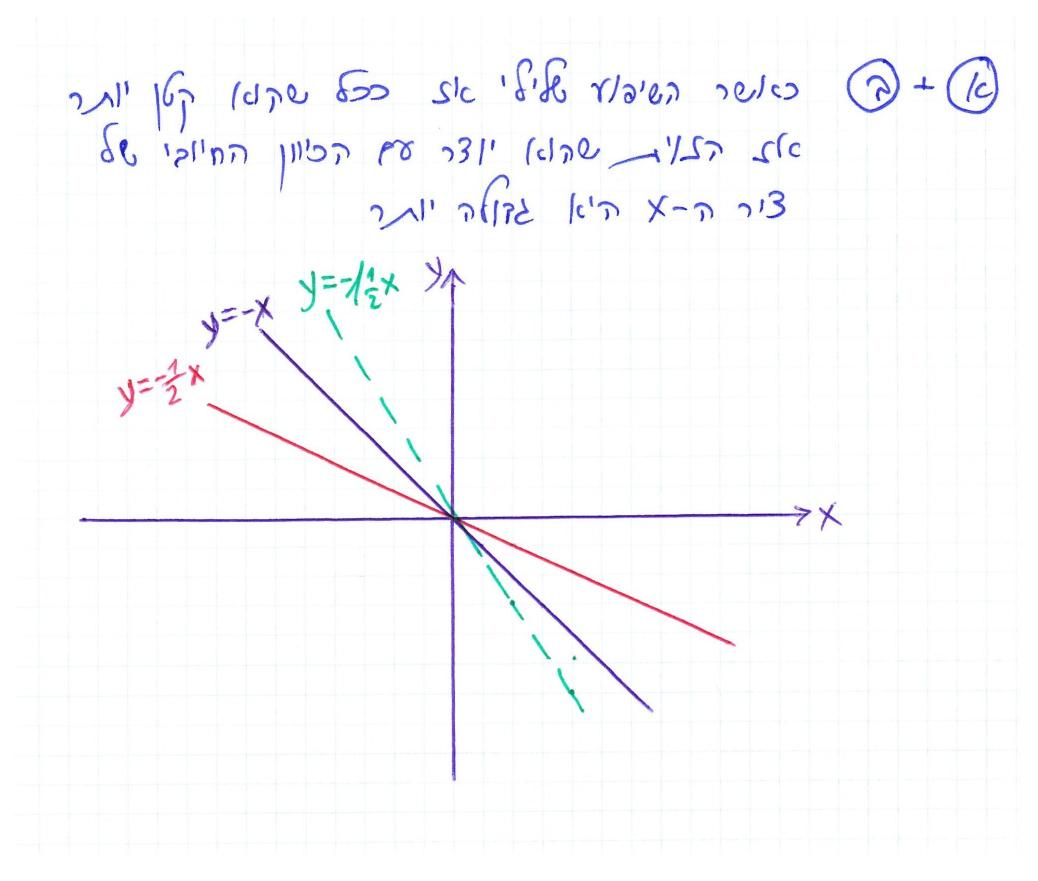 א + ב כאשר השיפוע שלילי אז ככל שהוא קטן יותר
אז הזוית שהוא יוצר עם הכיוון החיובי של
ציר ה-x היא גדולה יותר
y=-1½x
y
y=-x
y=-½x
x